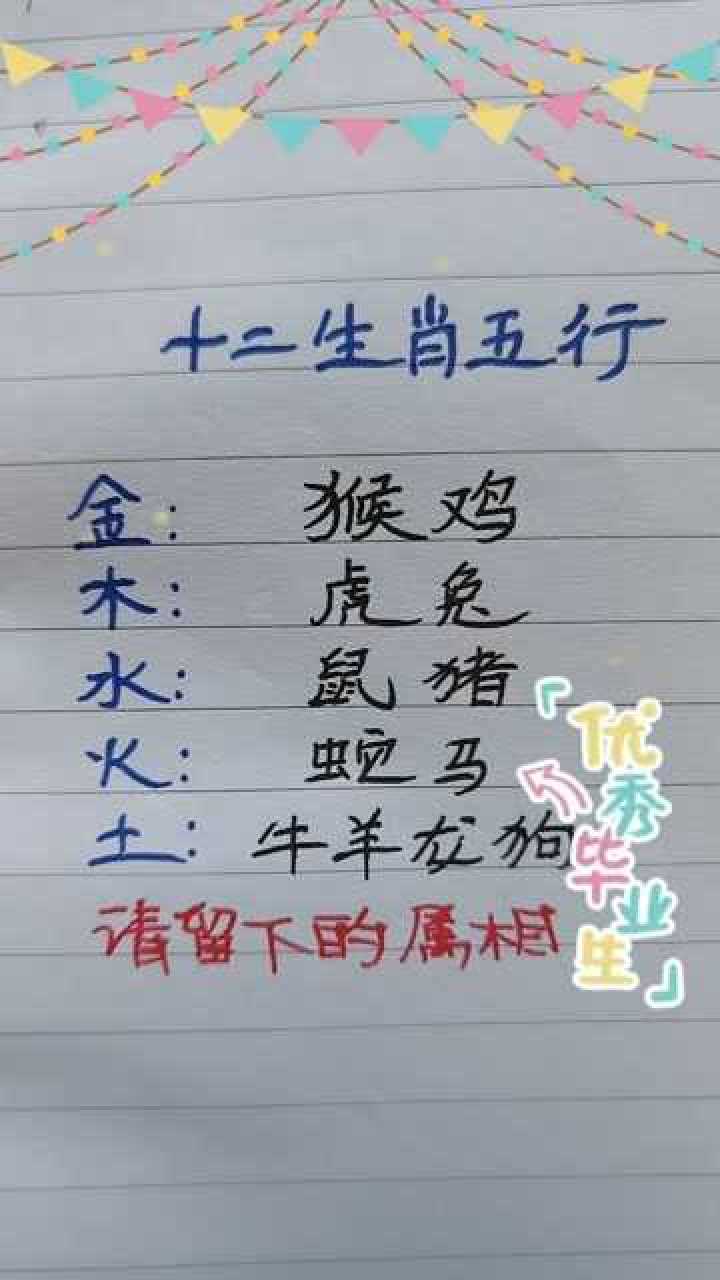 十二生肖五行
金： 猴鸡
木： 虎兔
水： 鼠猪
火： 蛇马
土： 牛羊龙狗
请留下的属相
「优秀毕业生」